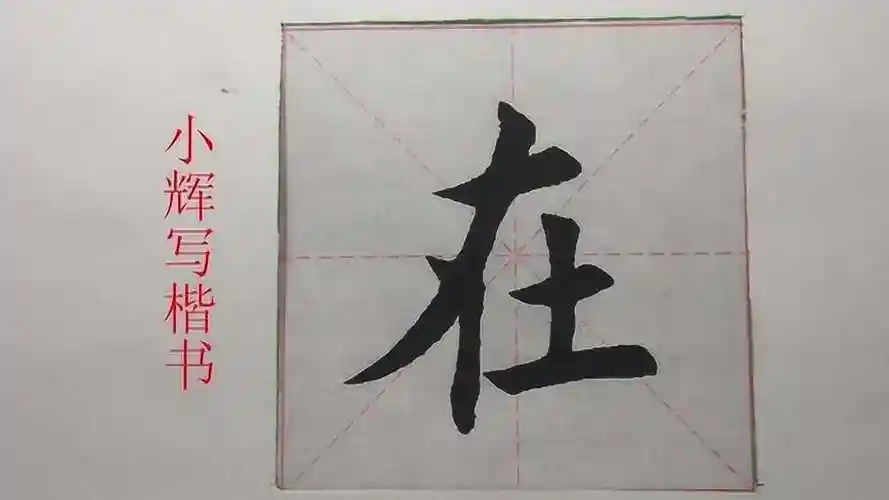 小辉写楷书
在